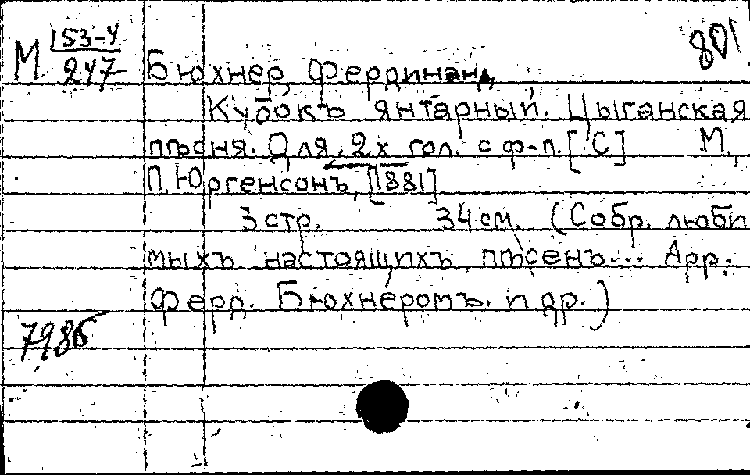 М 153-4
247
801
Бюхнер, Фердинанд
Кубокъ янтарный. Цыганская
пѣсня. Для 2х гол. с ф-п. [С] М.,
П. Юргенсонъ, [1881]
3 стр. 34 см. (Собр. люби
мыхъ настоящихъ пѣсенъ... Арр.
Ферд. Бюхнеромъ. и др.)
7986